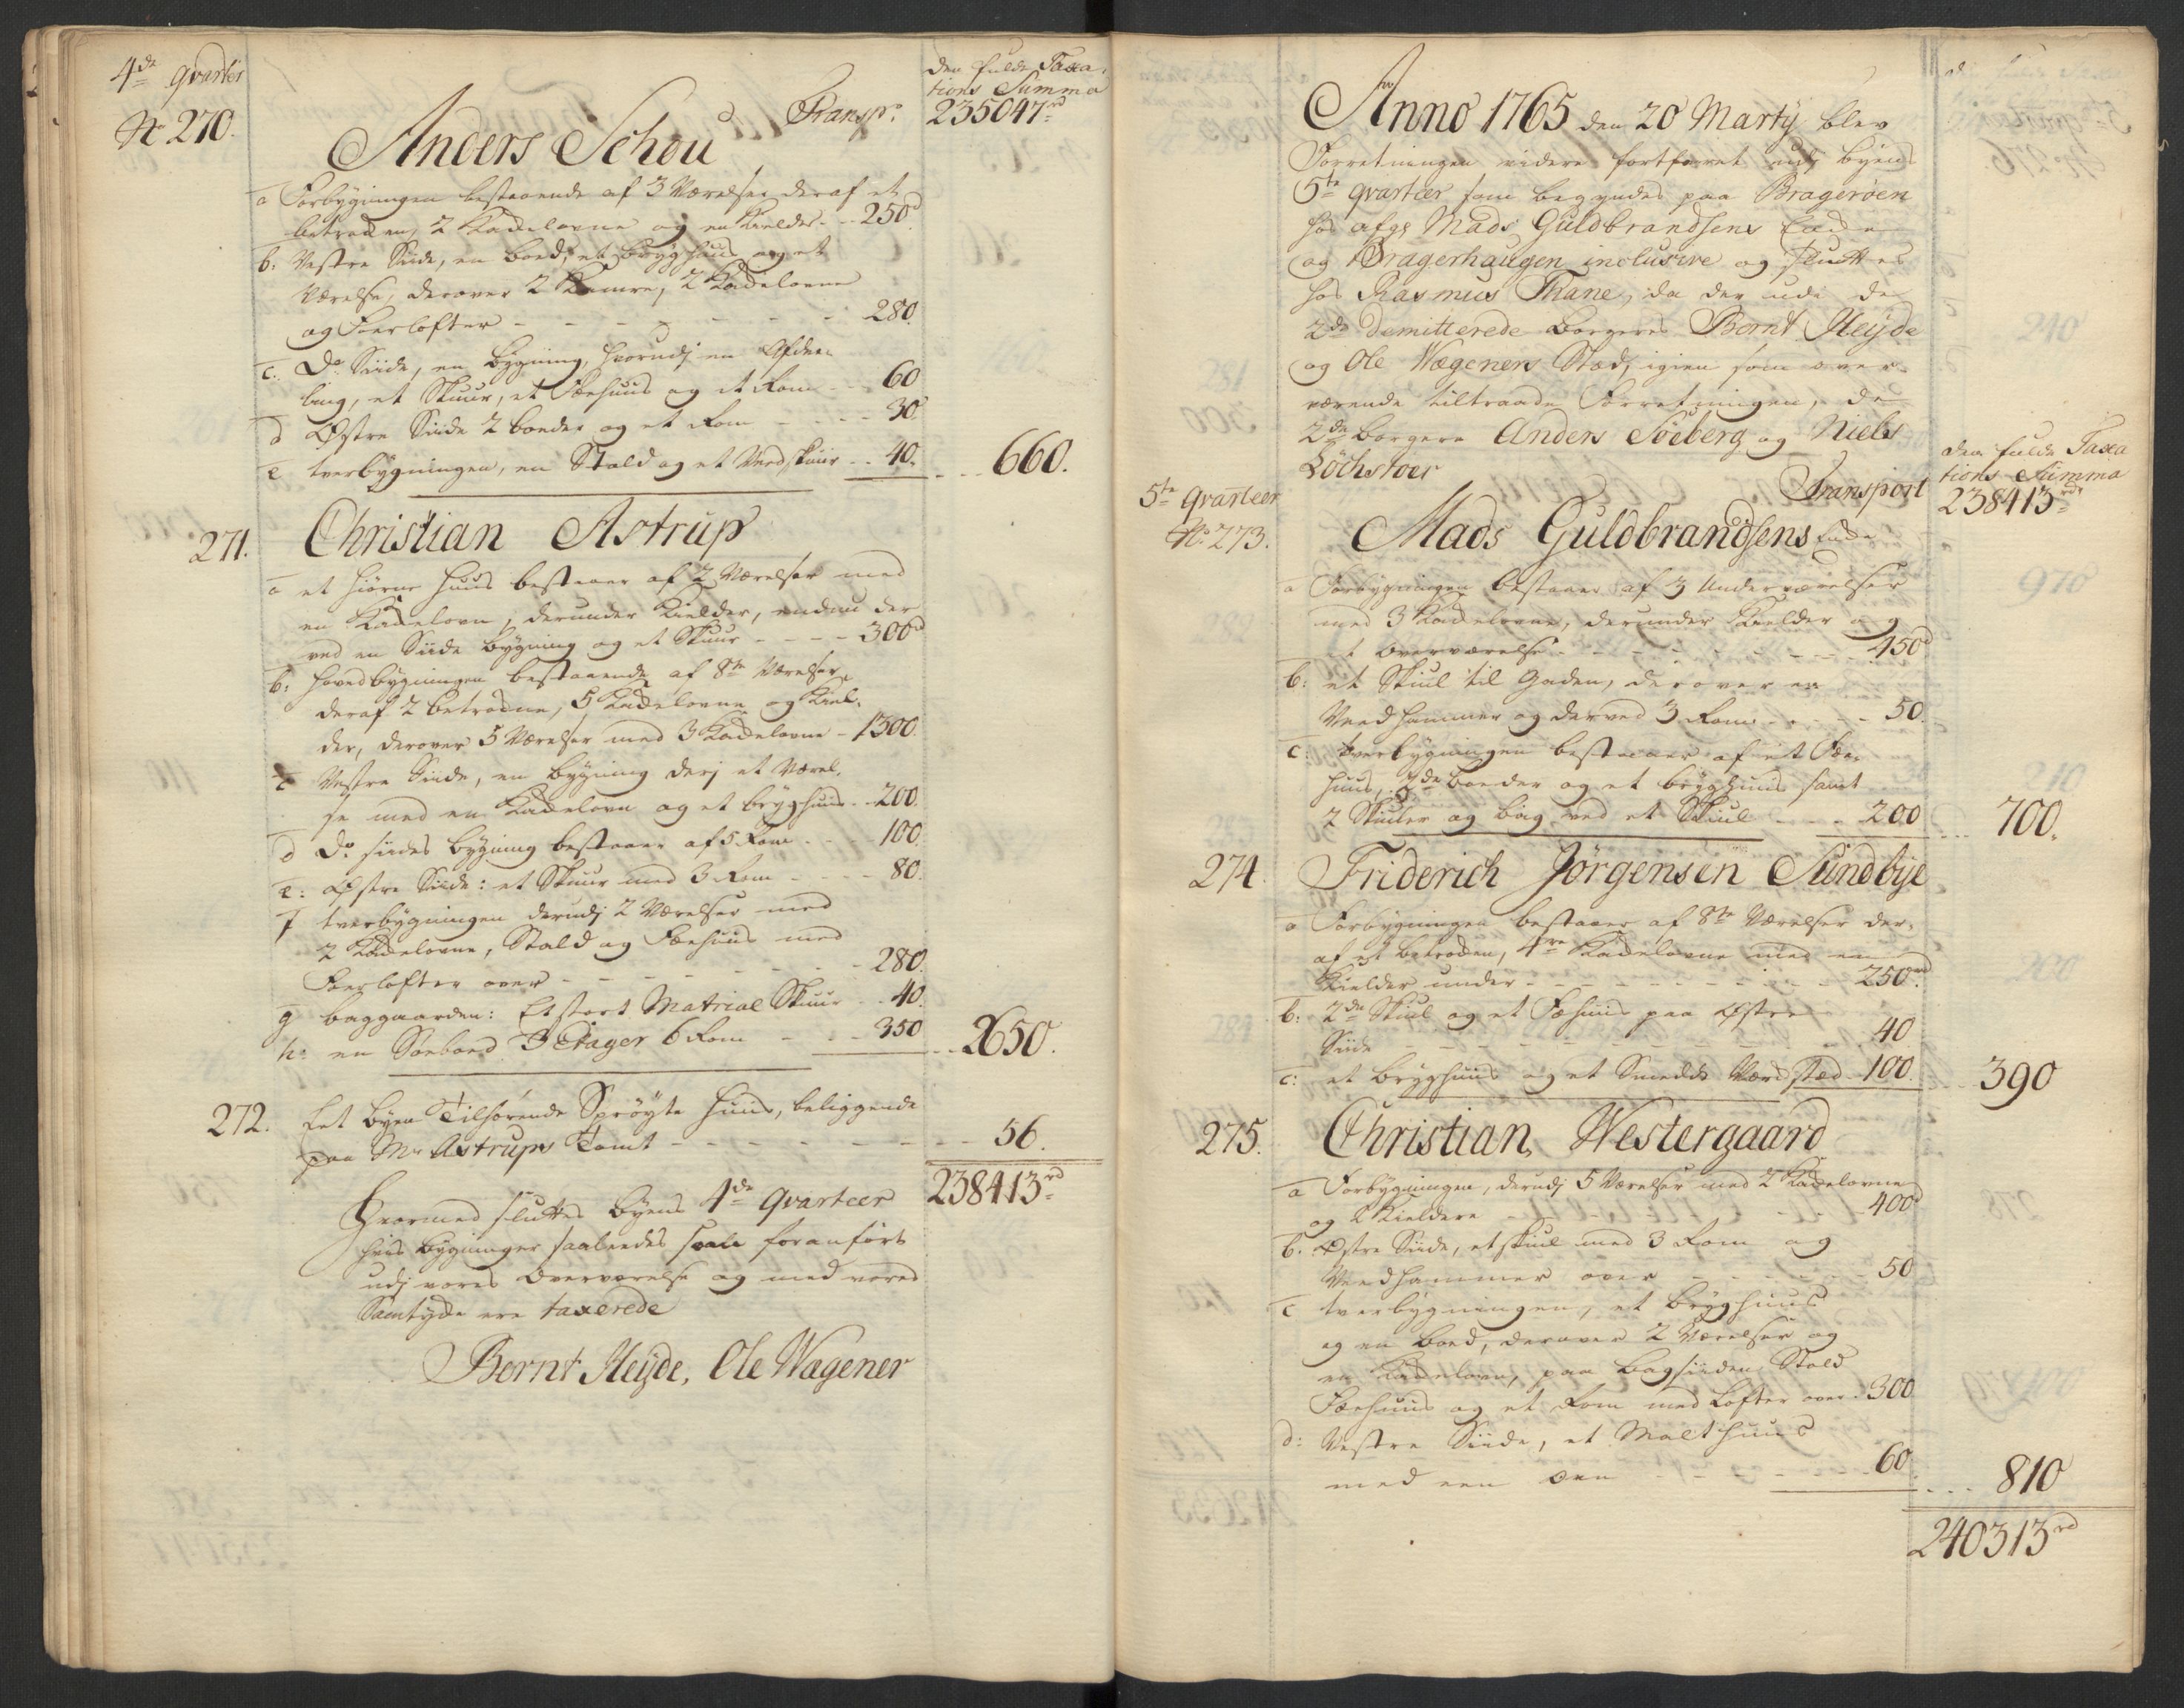 4de qvarter
No 270.
den fulde Taxa-
tions Summa
Transp:
235047rd
Anders Schou
a Forbygningen bestaaende af 3 Værelser deraf et
betrocken, 2 Kackelovne og en Kielder - - 250d
b: Vestre Siide, en boed, et bryghuus og et
Værelse, derover 2 Kamre, 2 Kackelovne
og Foerlofter - - - - - - 280.
c. Do Siide, en bygning, hvorudj en Afdee-
ling, et Skuur, et Fæehuus og et Rom - - 60
d Østre Siide 2 boeder og et Rom - - - 30
e tverbygningen, en Stald og et Vedskuur - - 40. - - 660.
271. Christian Astrup
a et Hiørne Huus bestaaer af 2 Værelser med
en Kackelovn, derunder Kielder, endnu der
ved en Siide bygning og et Skuur - - - - 300d
b: Hovedbygningen bestaaende af 8te Værelser,
deraf 2 betrockne, 5 Kackelovne og Kiel-
der, derover 5 Værelser med 3 Kackelovne - 1300.
c Vestre Siide, en bygning derj et Værel-
se med en Kackelovn og et bryghuus - - 200.
d Do siides bygning bestaaer af 5 Rom - - 100.
e: Østre Siide: et Skuur med 3 Rom - - - - 80.
f tverbygningen derudj 2 Værelser med
2 Kackelovne, Stald og Fæehuus med
Foerlofter over - - - - - - 280.
g baggaarden: Et stort Matrial Skuur - - 40.
h: en Søeboed 3 Etager 6 Rom - - - 350 - - 2650.
272. Eet byen Tilhørende Sprøyte Huus, beliggende
paa Mr Astrups Tomt - - - - - - - - 56.
238413rd
Hvormed sluttes byens 4de qvarteer
hvis bygninger saaledes som foranført
udj vores Overværelse og med vores
Samtykke ere taxerede
Bernt Heyde, Ole Wagener
Anno 1765 den 20 Martij blev
Forretningen videre fortfarret udj byens
5te qvarteer som begyndes paa Bragerøen
hos afg: Mads Guldbrandsens Encke
og Bragerhaugen inclusive og sluttes
hos Rasmus Thane, da der udi de
2de Demitterede borgeres Bernt Heyde
og Ole Wægeners Stæd, igien som over-
værende tiltraade Forretningen, de
2de borgere Anders Søeberg og Niels
Løchstoer
den fulde Taxa
tions Summa
Transport
238413rd
5te Qvarteer
No. 273. Mads Guldbrandsens Encke
a Forbygningen bestaaer af 3 Underværelser
med 3 Kackelovne, derunder Kielder og
et Overværelse - - - - - - - - 450d
b: et Skiul til Gaden, derover en
Veedhammer og derved 3 Rom - - - - 50.
c: tverbygningen bestaaer af et Fæe-
huus, 2de boeder og et bryghuus samt
2 Skuuler og bag ved et Skiul - - - 200 - - 700.
274. Friderich Jørgensen Sundbye
a Forbygningen bestaaer af 8te Værelser der-
af et betrocken, 4re Kackelovne med en
Kielder under - - - - - - - - 250rd
b: 2de Skiul og et Fæhuus paa Østre
Siide - - - - - - - - - - 40
c: et bryghuus og et Smedde Værcksted - 100. - - 390
275. Christian Westergaard
a Forbygningen, derudj 5 Værelser med 2 Kackelovne
og 2 Kieldere - - - - - - - 400d
b. Østre Siide, et skiul med 3 Rom og
Veedhammer over - - - - - - 50
c tverbygningen, et bryghuus
og en boed, derover 2 Værelser og
en Kackelovn, paa bagsiiden Stald
Fæehuus og et Rom med Lofter over - 300
d: Vestre Siide, et Malthuus
med een Ovn - - - - - - 60 - - - 810
240313rd